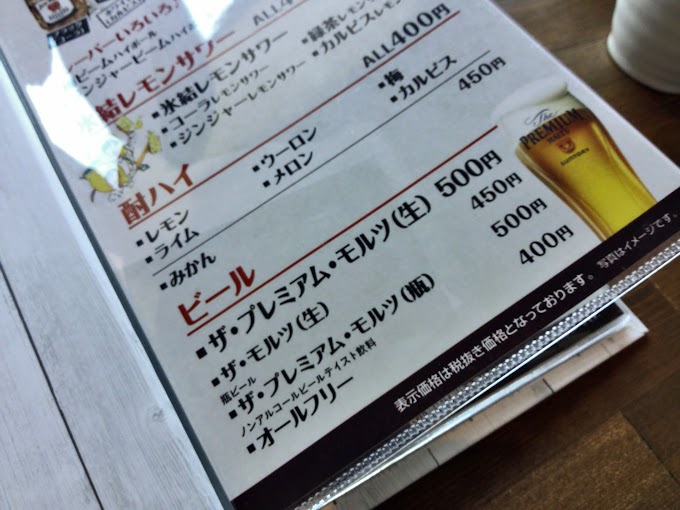 ALL400円
結レモンサワー ALL400円
・氷結レモンサワー
・コーラレモンサワー
・ジンジャーレモンサワー
・緑茶レモン
・カルピスレモン
酎ハイ 450円
・レモン
・ライム
・みかん
・ウーロン
・メロン
・梅
・カルピス
ビール
・ザ・プレミアム・モルツ(生) 500円
・ザ・モルツ(生) 450円
瓶ビール
・ザ・プレミアム・モルツ(瓶) 500円
ノンアルコールビールテイスト飲料
・オールフリー 400円
The
PREMIUM
MALT'S
SUNTORY
表示価格は税抜き価格となっております。 写真はイメージです。